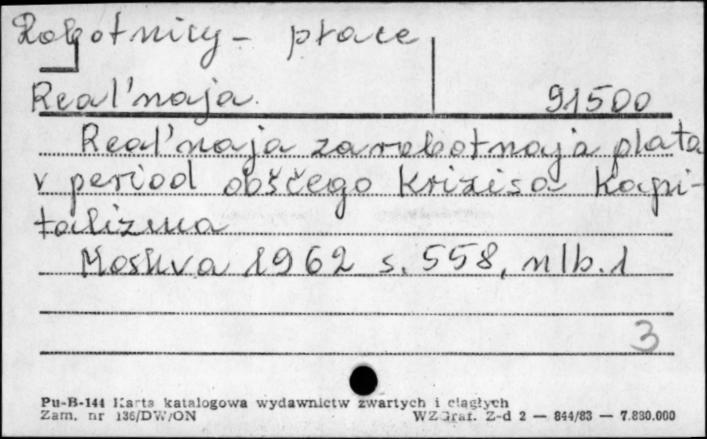 Robotnicy - płace
Real'naja 91500
Real'naja zarabotnaja plata
v period obščego krizisa kapi-
talizma
Moskva 1962 s. 558, nlb. 1
3
Pu-B-144 Karta katalogowa wydawnictw zwartych i ciągłych
Zam. nr 136/DW/ON WZGraf. Z-d 2 — 844/83 — 7.830.000